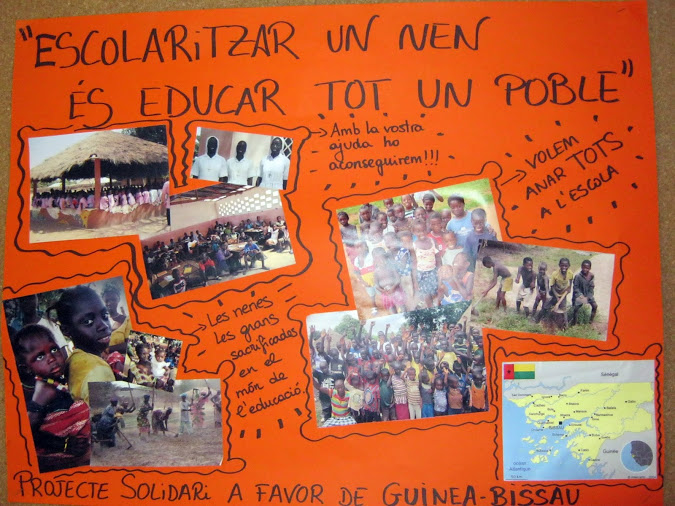 "ESCOLARiTZAR UN NEN
ÉS EDUCAR TOT UN POBLE"
Amb la vostra
ajuda ho
aconseguirem!!!
VOLEM
ANAR TOTS
A L'ESCOLA
LES NENES
LES grans
sacrificades
en el
món de
l'educació.
Senegal
Guinée
océan
Atlantique
PROJECTE SOLiDARi A FAVOR DE GUiNEA-BiSSAU